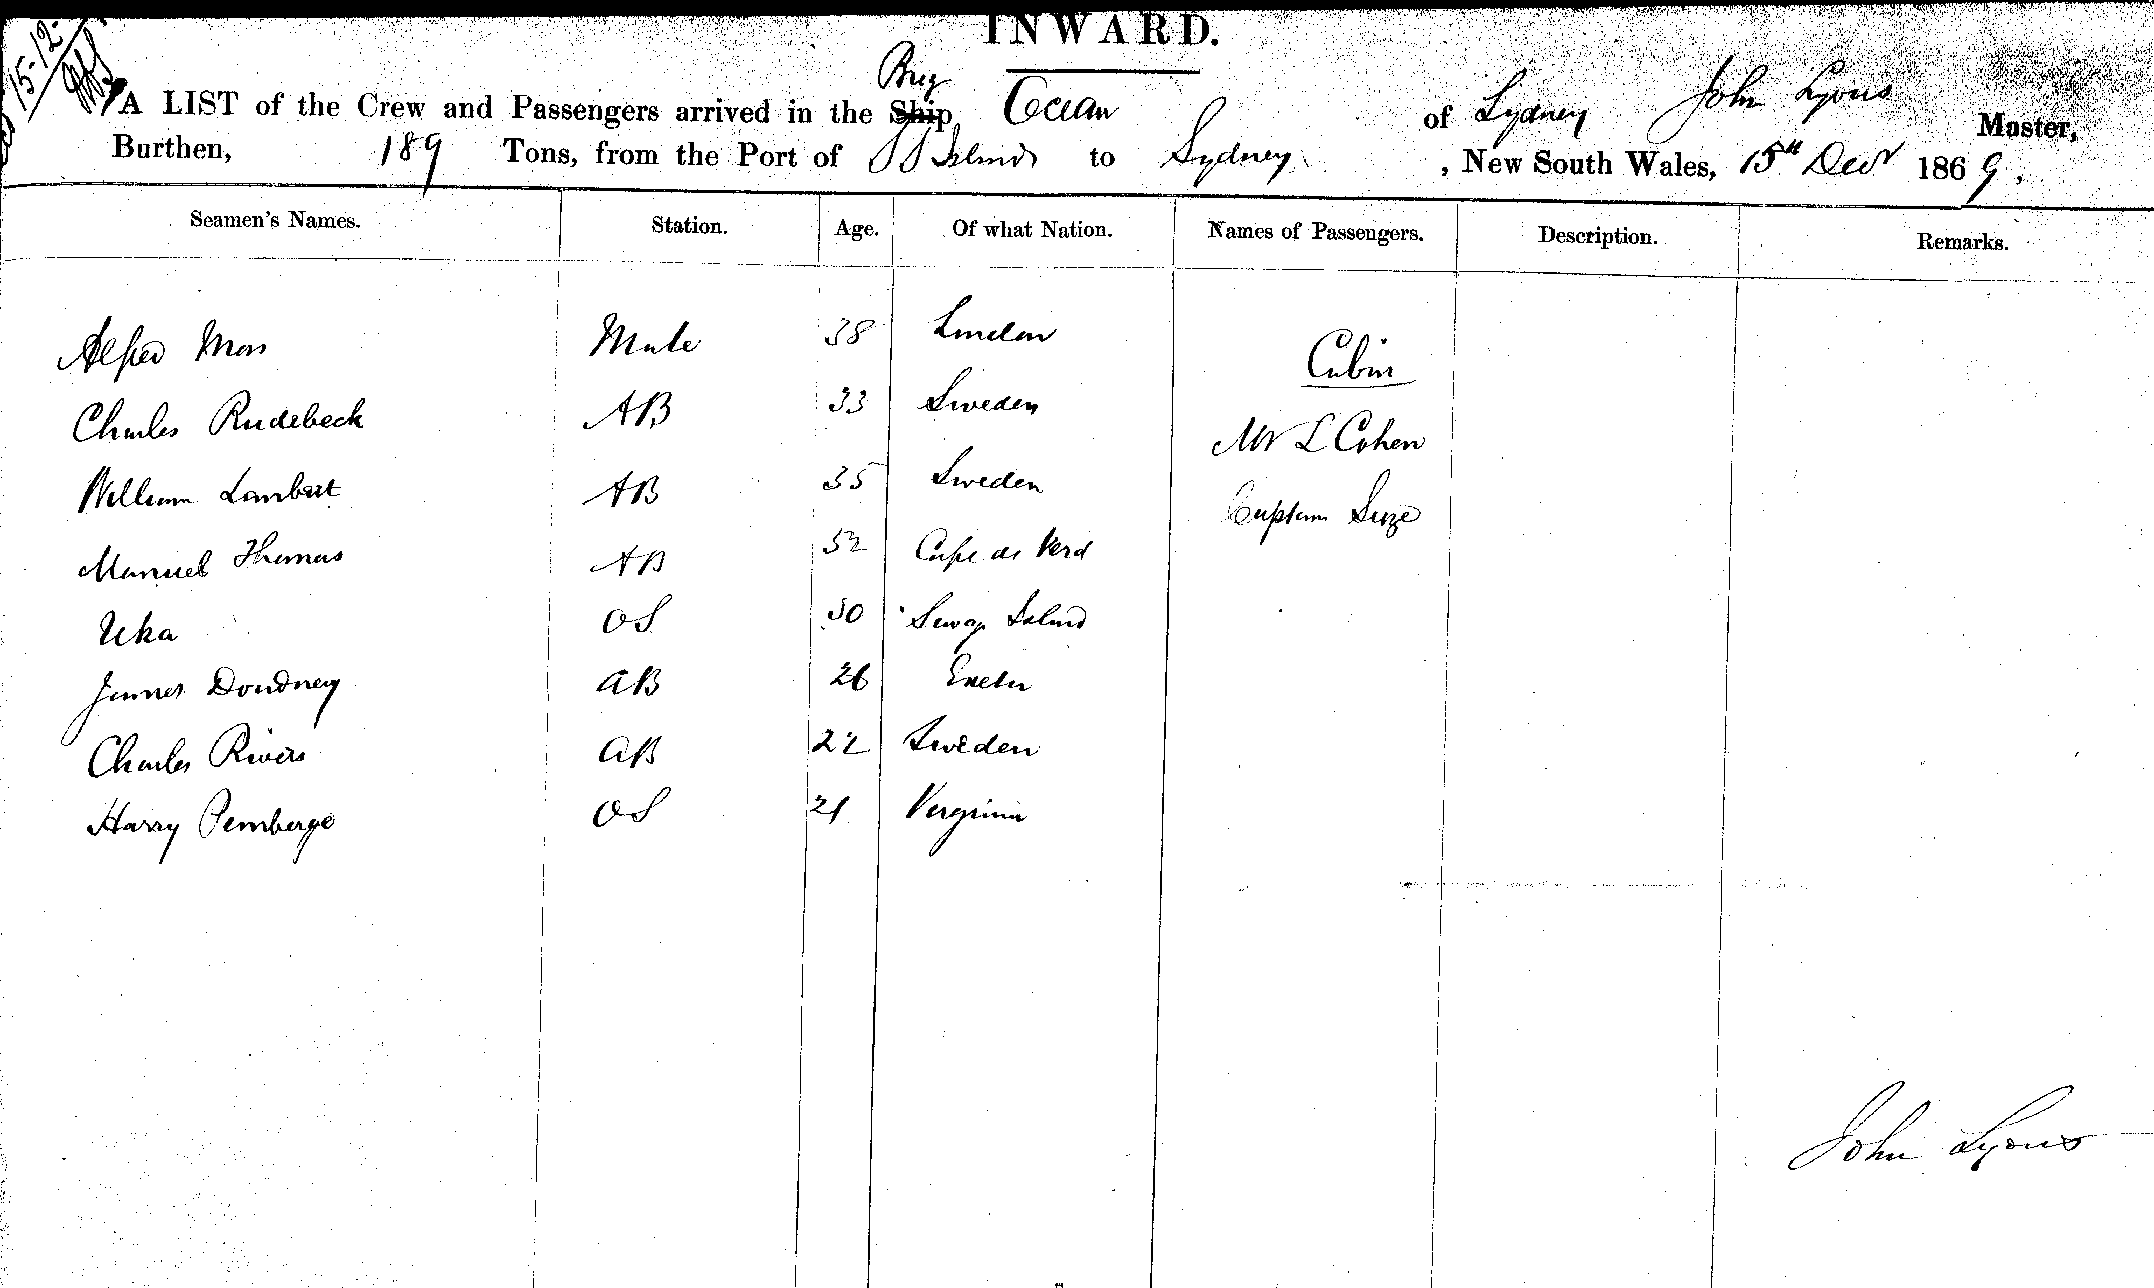 15-12-
INWARD.
Brig
A LIST of the Crew and Passengers arrived in the Ship Ocean of Sydney John Lyons Master,
Burthen, 189 Tons, from the Port of SS Islands to Sydney, New South Wales, 15th Decr 1869.
Seamen's Names. Station. Age. Of what Nation. Names of Passengers. Description. Remarks.
Alfred Mate 38 London
Cabin
Charles Rudebeck AB 33 Sweden
Mr L Cohen
William Lambert AB 35 Sweden
Captain
Manuel Thomas AB 52 Cape de Verd
Uka OS Island
James Doudney AB 26 Exeter
Charles Rivers AB 22 Sweden
Harry Pemberge OS 21 Verginia
John Lyons